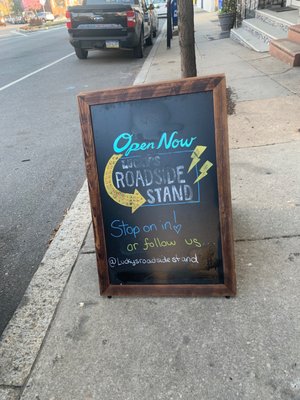 Open Now
LUCKY'S
ROADSIDE
STAND
Stop on in!
or follow us...
@Luckysroadsidestand